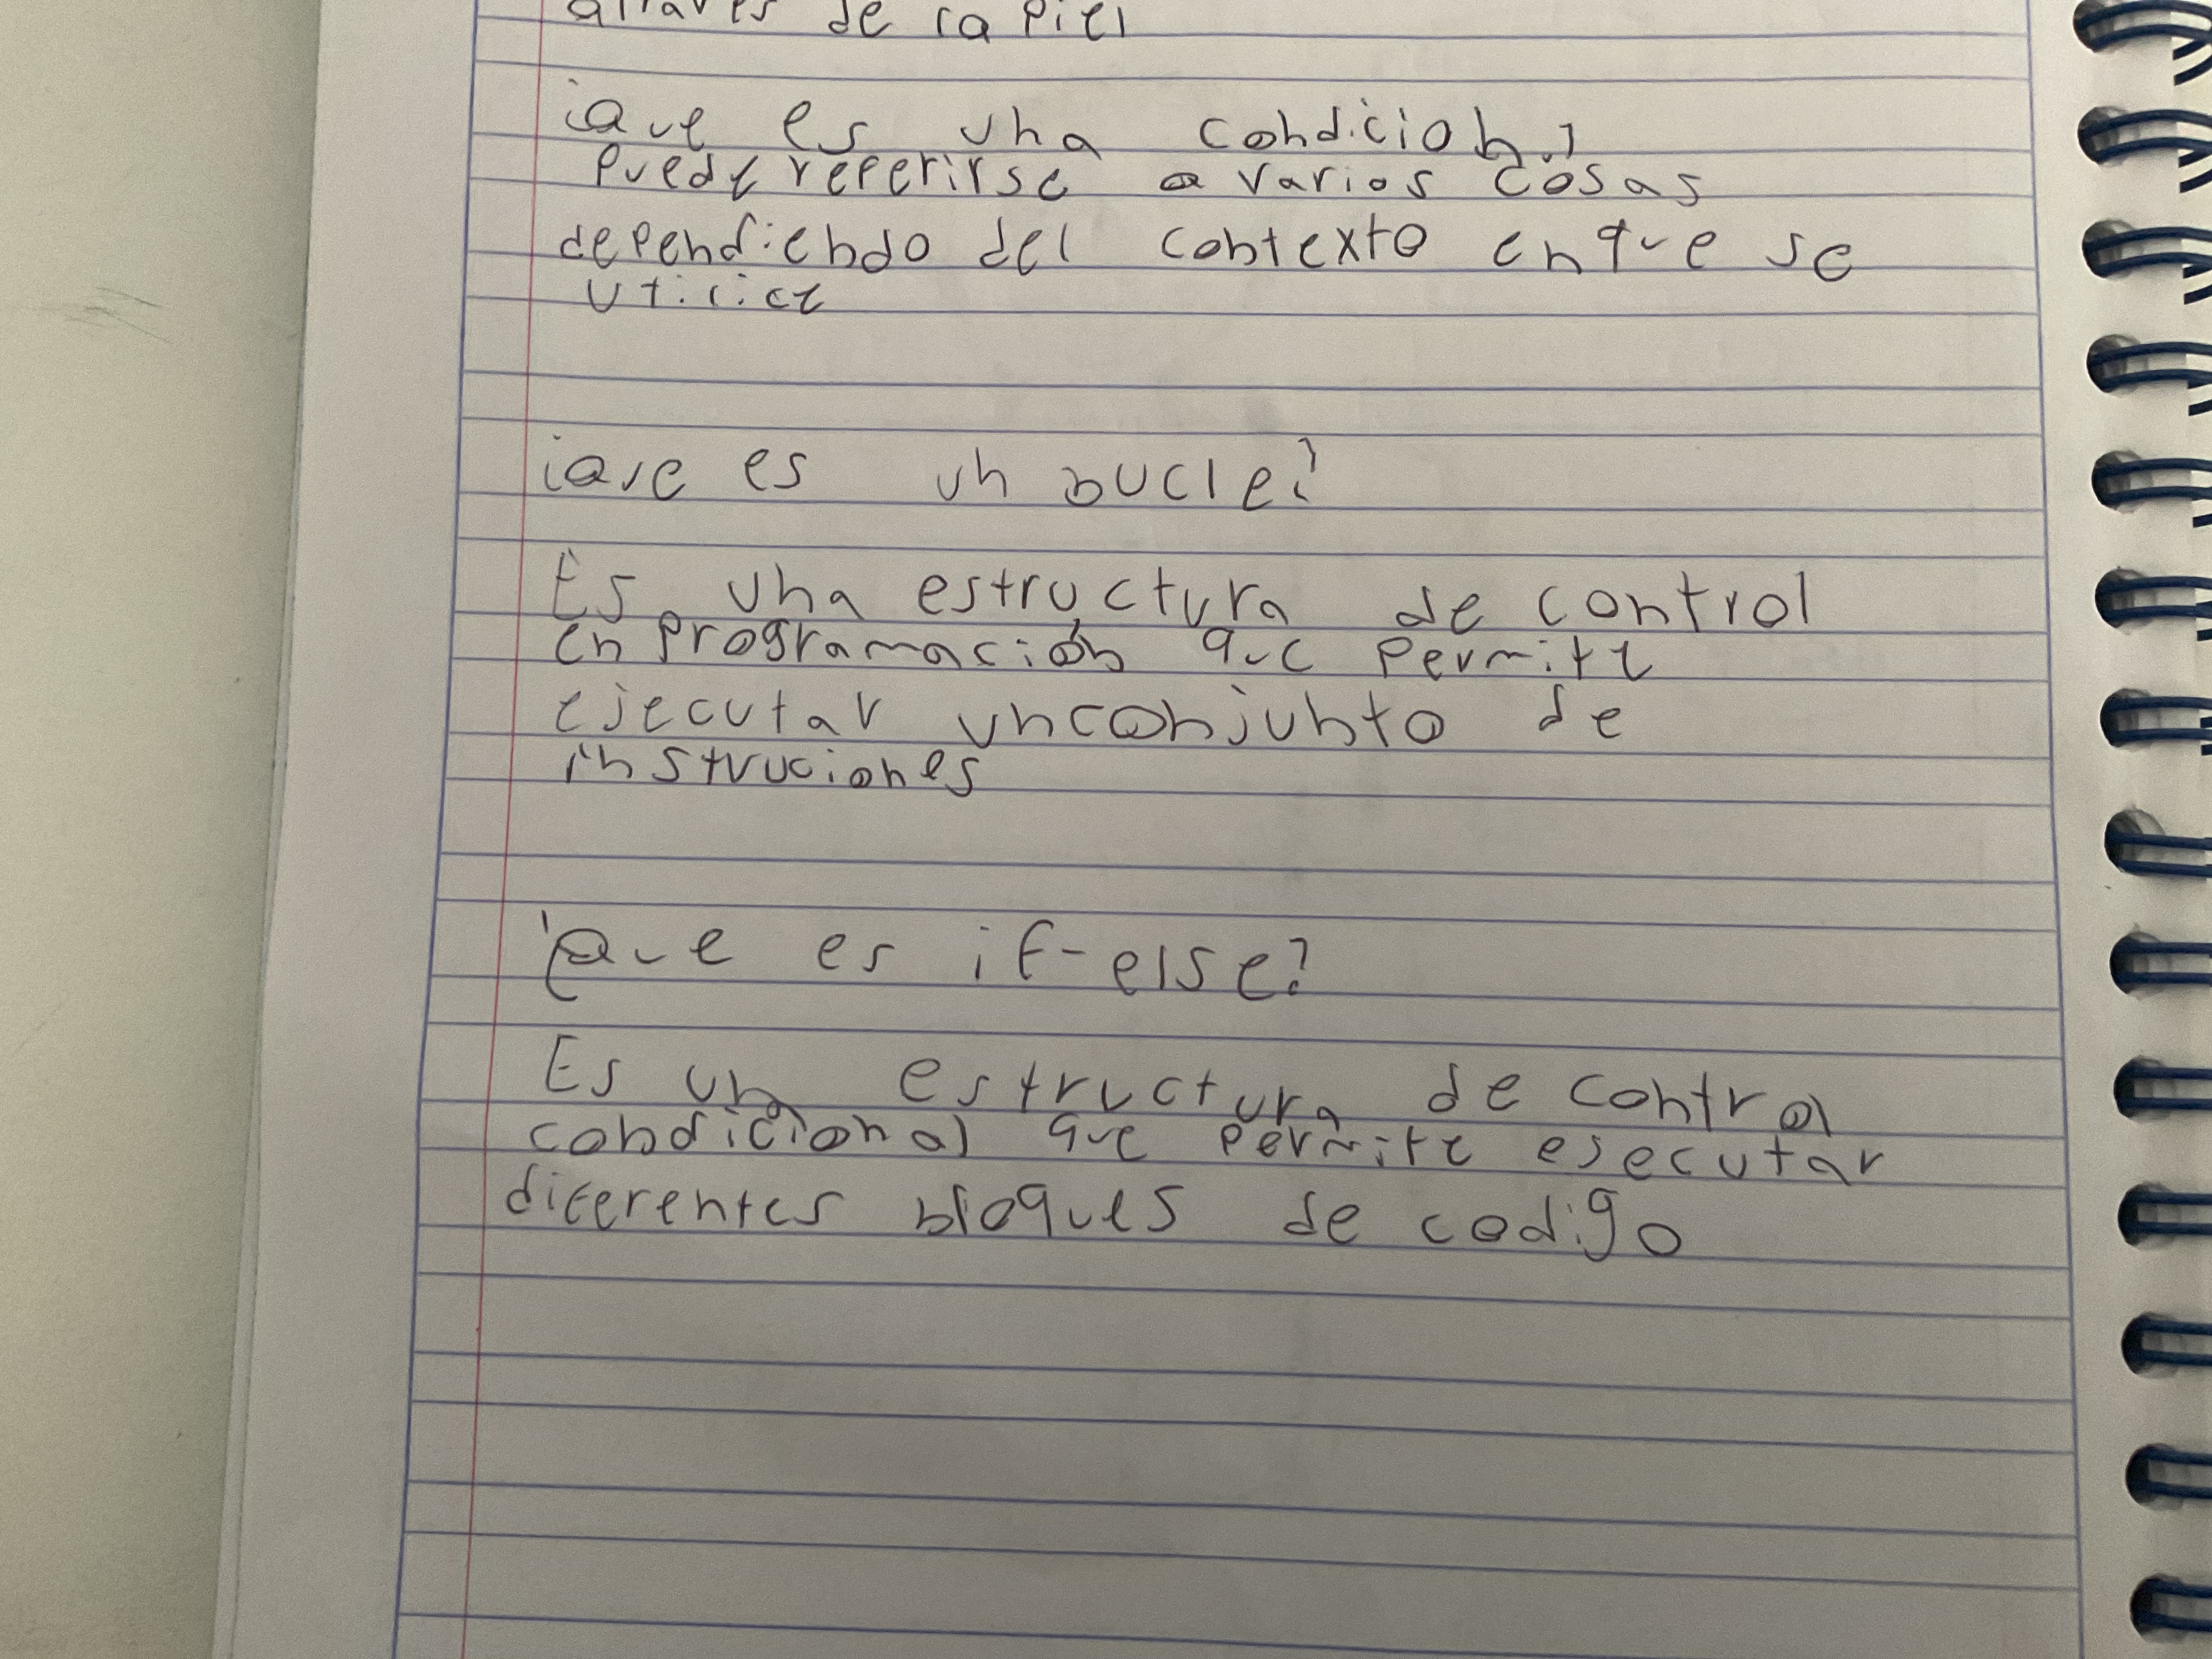 de la piel
¿Que es una condicion?
Puede referirse a varios cosas
dependiendo del contexto en que se
utilice
¿Que es un bucle?
Es una estructura de control
en programación que permite
ejecutar un conjunto de
instruciones
¿Que es if-else?
Es una estructura de control
condicional que permite ejecutar
diferentes bloques de codigo